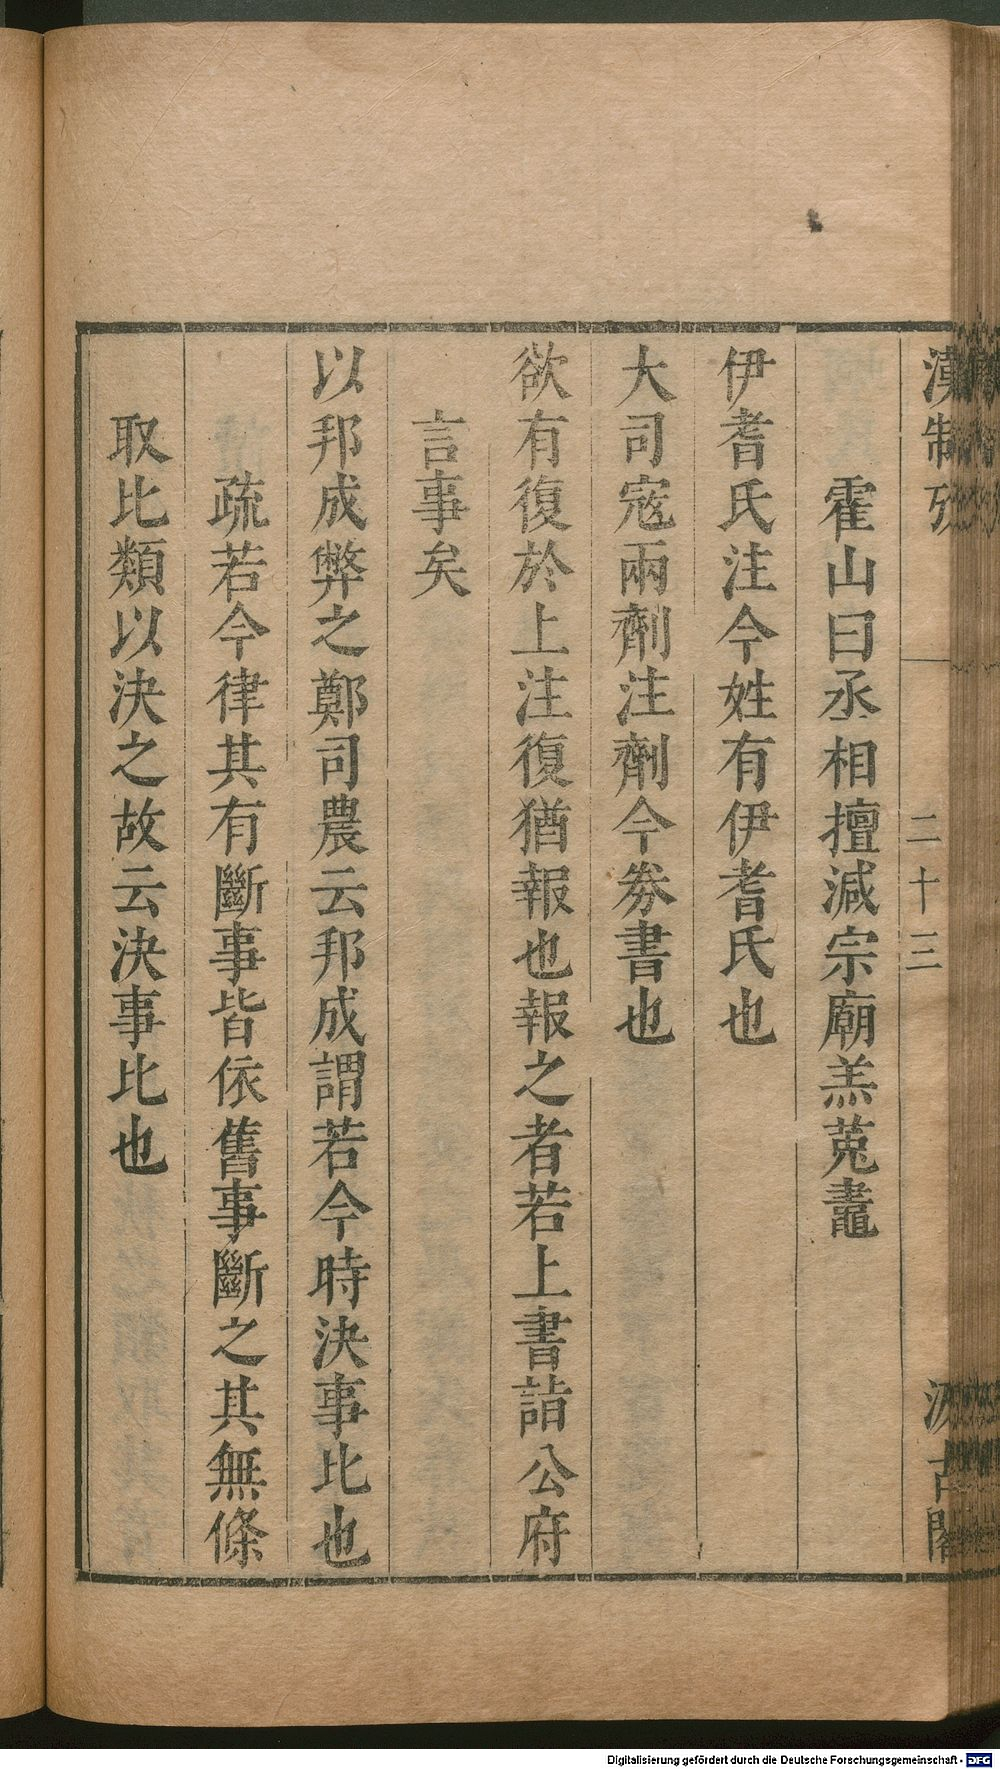 漢制攷
二十三
汲古閣
霍山曰丞相擅減宗廟羔菟鼃
伊耆氏注今姓有伊耆氏也
大司寇兩劑注劑今券書也
欲有復於上注復猶報也報之者若上書詣公府
言事矣
以邦成弊之鄭司農云邦成謂若今時決事比也
疏若今律其有斷事皆依舊事斷之其無條
取比類以決之故云決事比也
Digitalisierung gefördert durch die Deutsche Forschungsgemeinschaft - DFG